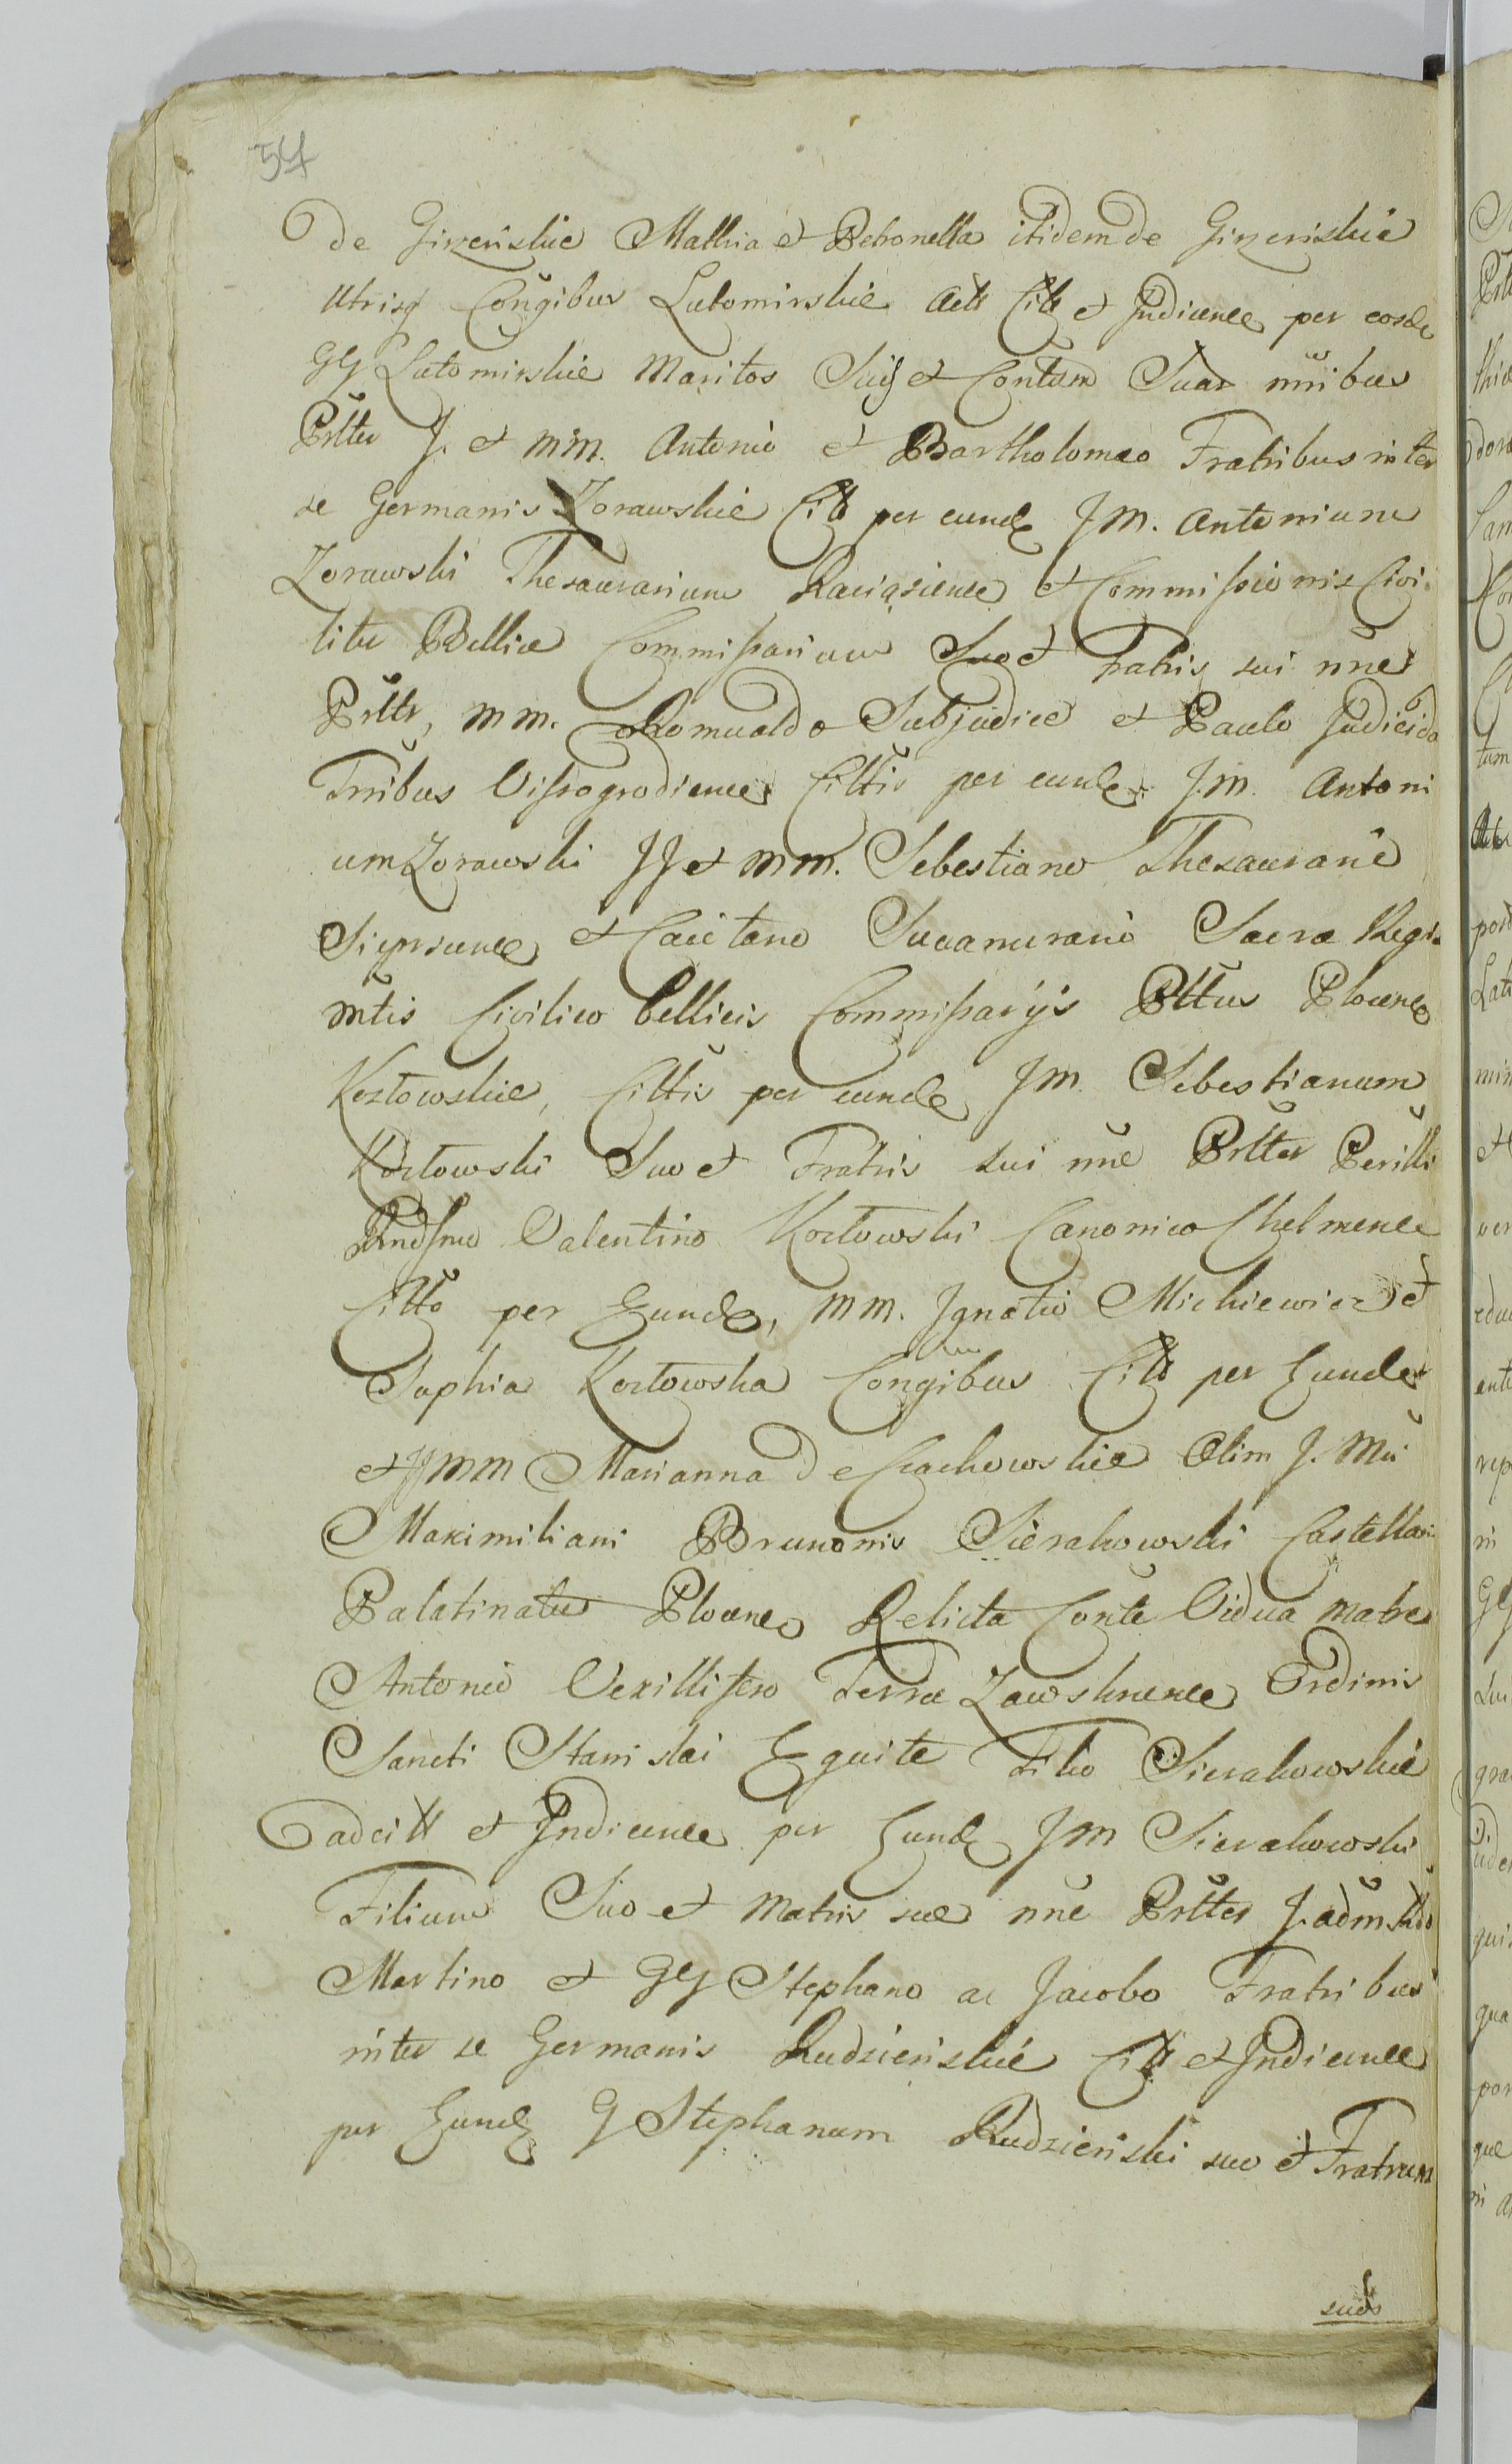 54
de Gizenskie Mathia et Petronella itidem de Gizenskie
utrisq Congibus Lutomirskie Actt Citt et Indicence per eosde
GG Lutomirskie Maritos Suis et Contum Suar nnibus
Prtter J. et MM. Antonio et Bartholomeo Fratribus inter
se Germanis Zorawskie Citt per eunde JM. Antonium
Zorawski Thesaurarium Raciązience et Commissionis Civi-
lito Bellice Commissarium Suo et Fratris sui nne
Prtter, MM. Romualdo Subjudice et Paulo Judicido
Trribus Vissogrodience Cittis per eunde JM. Antoni
um Zorawski JJ et MM. Sebestiano Thesaurario
Sieprcence et Caietano Succamerario Sacræ Regi
Mttis Civilico bellicis Commissarijs Pttus Plocence
Kozłowskie, Cittis per eunde JM Sebestianum
Kozłowski Suo et Fratris sui nne Prtter Perilli
Rndssmo Valentino Kozłowski Canonico Chelmence
Citto per Eunde, MM. Ignatio Mickiewicz et
Sophia Kozłowska Congibus Citt per Eunde
et JJ MM Marianna de Czachowskie Olim J. Mci
Maximiliani Brunonis Sierakowski Castellani
Palatinatus Plocence Relicta Conte Vidua Matre
Antonio Vexillifero Terræ Zawskrnence Ordinis
Sancti Stanislai Equite Filio Sierakowskie
adcitt et Indicence per Eunde JM Sierakowski
Filium Suo et Matris suæ nne Prtter J. adm Rdo
Martino et GG Stephano ac Jacobo Fratribus
inter se Germanis Rudzienskie Citt et Indicence
per Eunde G Stephanum Rudzieński suo et Fratrum
suor